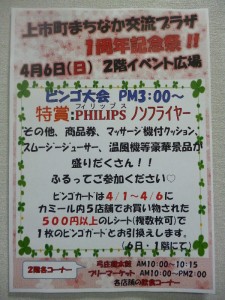 上市町まちなか交流プラザ
1周年記念祭!!
4月6日(日) 2階イベント広場
ビンゴ大会 PM3:00~
フィリップス
特賞:PHILIPS ノンフライヤー
その他、商品券、マッサージ機付クッション、
スムージージューサー、温風機等豪華景品が
盛りだくさん!!
ふるってご参加ください♡
ビンゴカードは4/1~4/6に
カミール内5店舗でお買物された
500円以上のレシート(複数枚可)で
1枚のビンゴカードとお引換えします。
(6日・1階にて)
2階各コーナー
AM10:00~10:15
フリーマーケット AM10:00~PM2:00
各店舗の飲食コーナー